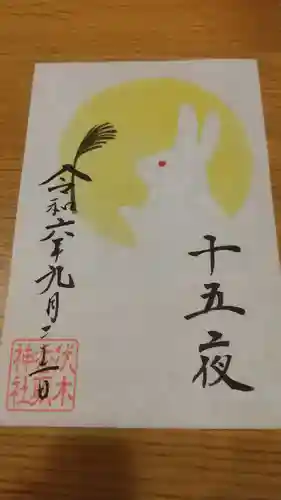 十五夜
令和六年九月二十一日
伏木
香取
神社